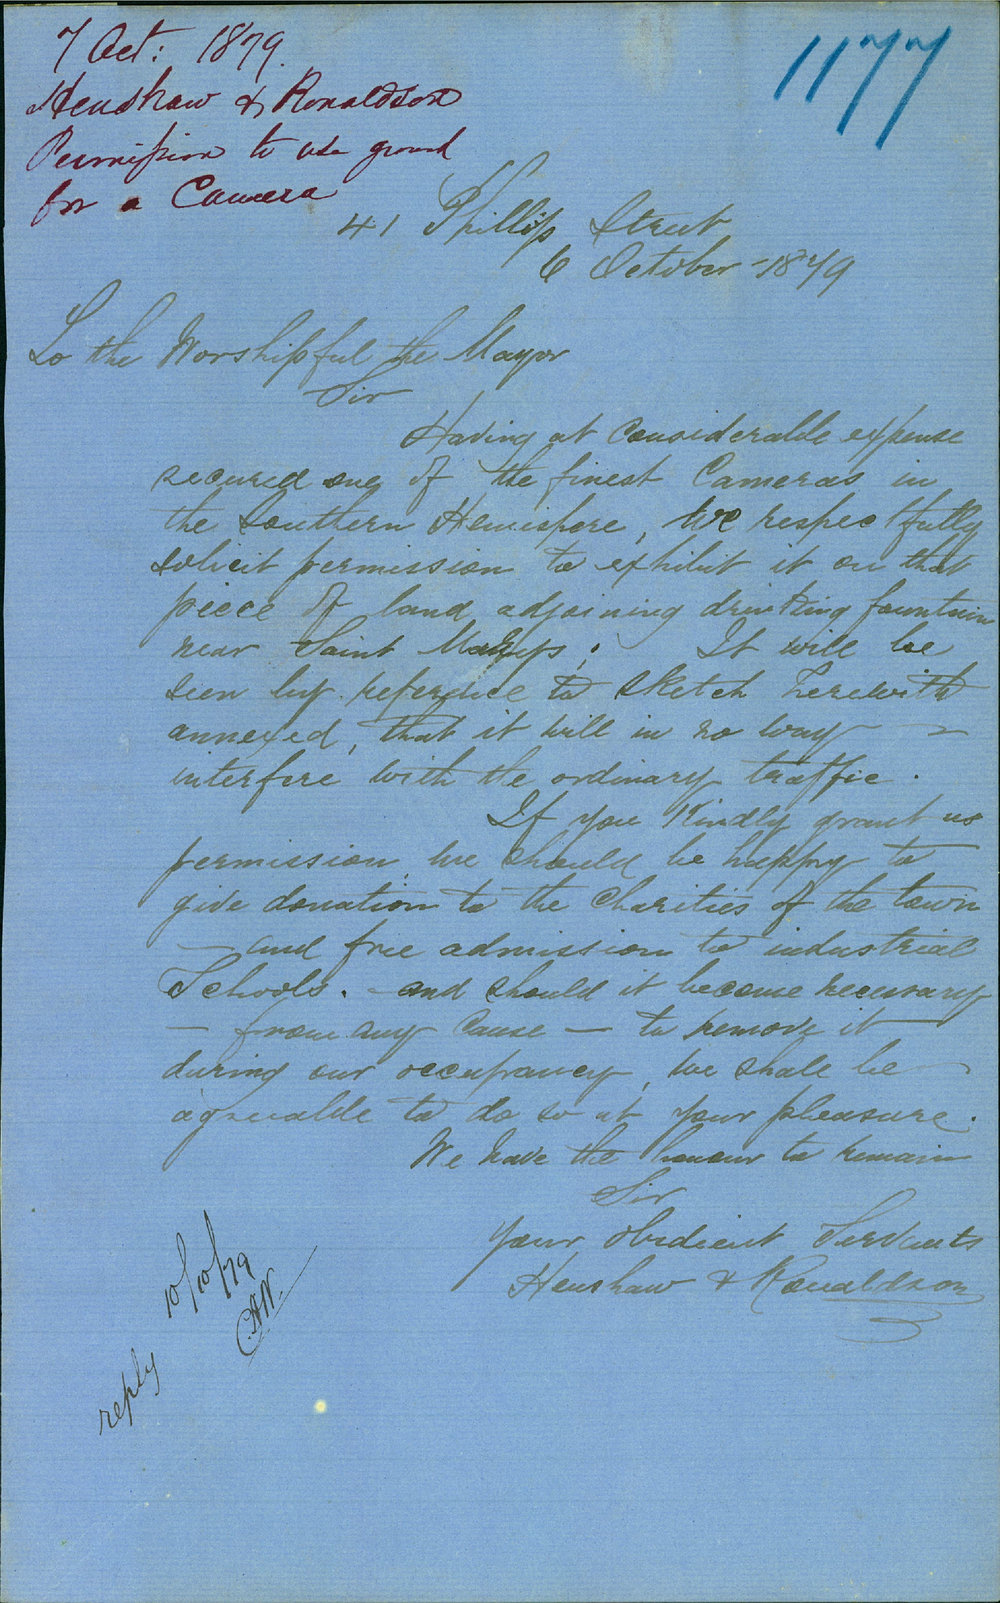 7 Oct: 1879.
Henshaw & Ronaldson
Permission to use ground
for a Camera
1177
41 Phillip Street
6 October - 1879
To the Worshipful the Mayor
Sir
Having at Considerable expense
secured one of the finest Cameras in
the Southern Hemispere, We respectfully
solicit permission to exhibit it on that
piece of land adjoining drinking fountain
near Saint Marys; It will be
seen by reference to sketch herewith
annexed, that it will in no way
interfere with the ordinary traffic.
If you Kindly grant us
permission, we should be happy to
give donation to the Charities of the town
— and free admission to industrial
Schools. - and should it become necessary
— from any Cause — to remove it
during our occupancy, we shall be
agreeable to do so at your pleasure.
We have the honour to remain
Sir
Your obedient Servants
Henshaw & Ronaldson
reply 10/10/79